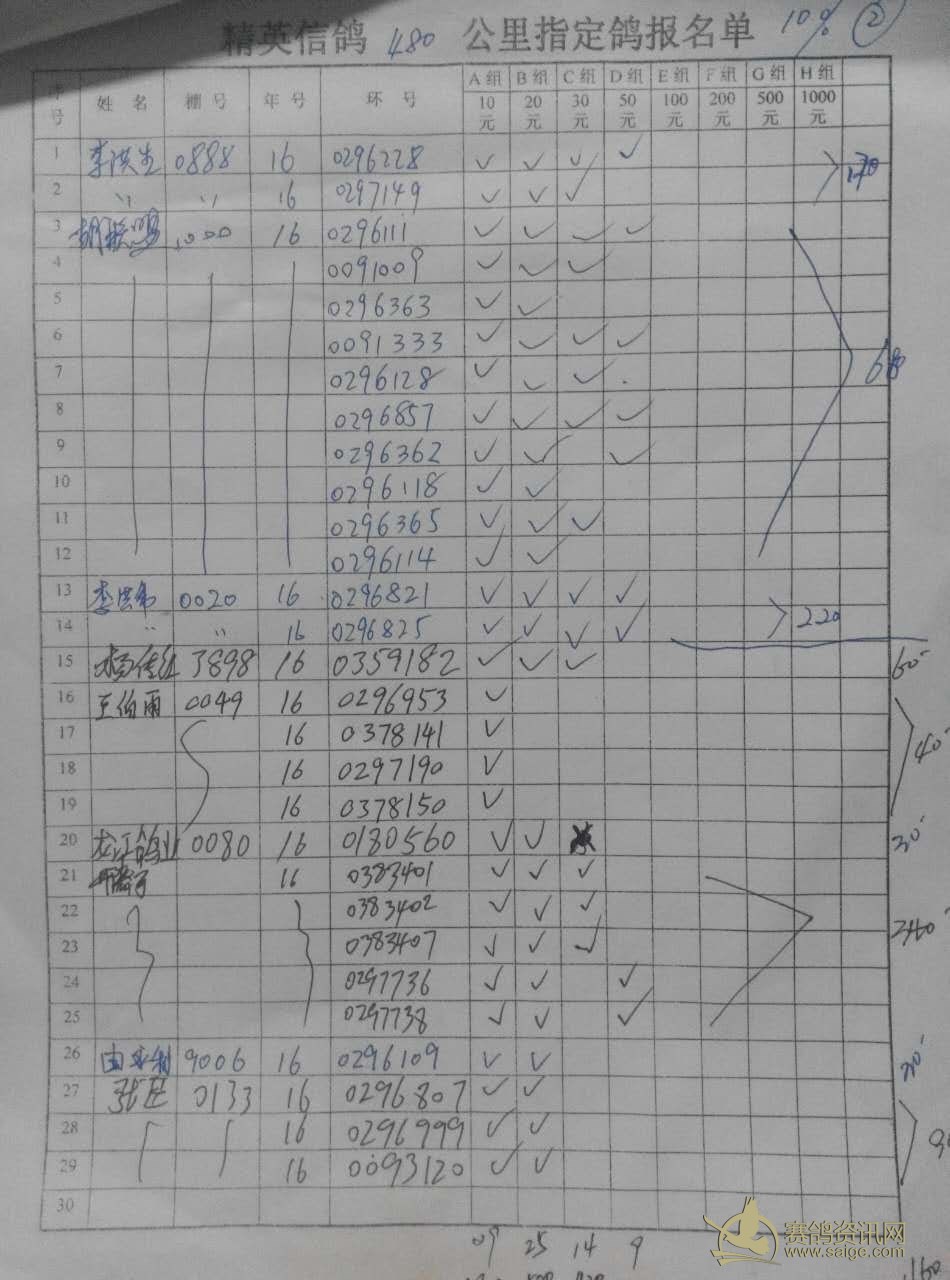 精英信鸽 480 公里指定鸽报名单 10% ②
序号 姓 名 棚 号 年 号 环 号 A 组 10 元 B 组 20 元 C 组 30 元 D 组 50 元 E 组 100 元 F 组 200 元 G 组 500 元 H 组 1000 元
1 李洪生 0888 16 0296228 ✓ ✓ ✓ ✓
2 〃 〃 16 0297149 ✓ ✓ ✓ 170
3 1000 16 0296111 ✓ ✓ ✓ ✓
4 0091009 ✓ ✓ ✓
5 0296363 ✓ ✓
6 0091333 ✓ ✓ ✓ ✓
7 0296128 ✓ ✓ ✓
8 0296857 ✓ ✓ ✓ ✓
9 0296362 ✓ ✓ ✓
10 0296118 ✓ ✓
11 0296365 ✓ ✓ ✓
12 0296114 ✓ ✓
13 0020 16 0296821 ✓ ✓ ✓ ✓
14 〃 〃 16 0296825 ✓ ✓ ✓ ✓ 220
15 3898 16 0359182 ✓ ✓ ✓ 60-
16 王伯雨 0049 16 0296953 ✓
17 16 0378141 ✓ 40-
18 16 0297190 ✓
19 16 0378150 ✓
20 龙江鸽业 0080 16 0180560 ✓ ✓ 30-
21 16 0383401 ✓ ✓ ✓
22 0383402 ✓ ✓ ✓
23 0383407 ✓ ✓ ✓
24 0297736 ✓ ✓ ✓
25 0297738 ✓ ✓ ✓
26 9006 16 0296109 ✓ ✓
27 0133 16 0296807 ✓ ✓
28 16 0296999 ✓ ✓
29 16 0093120 ✓ ✓
30
25 14 9
赛鸽资讯网
www.saige.com